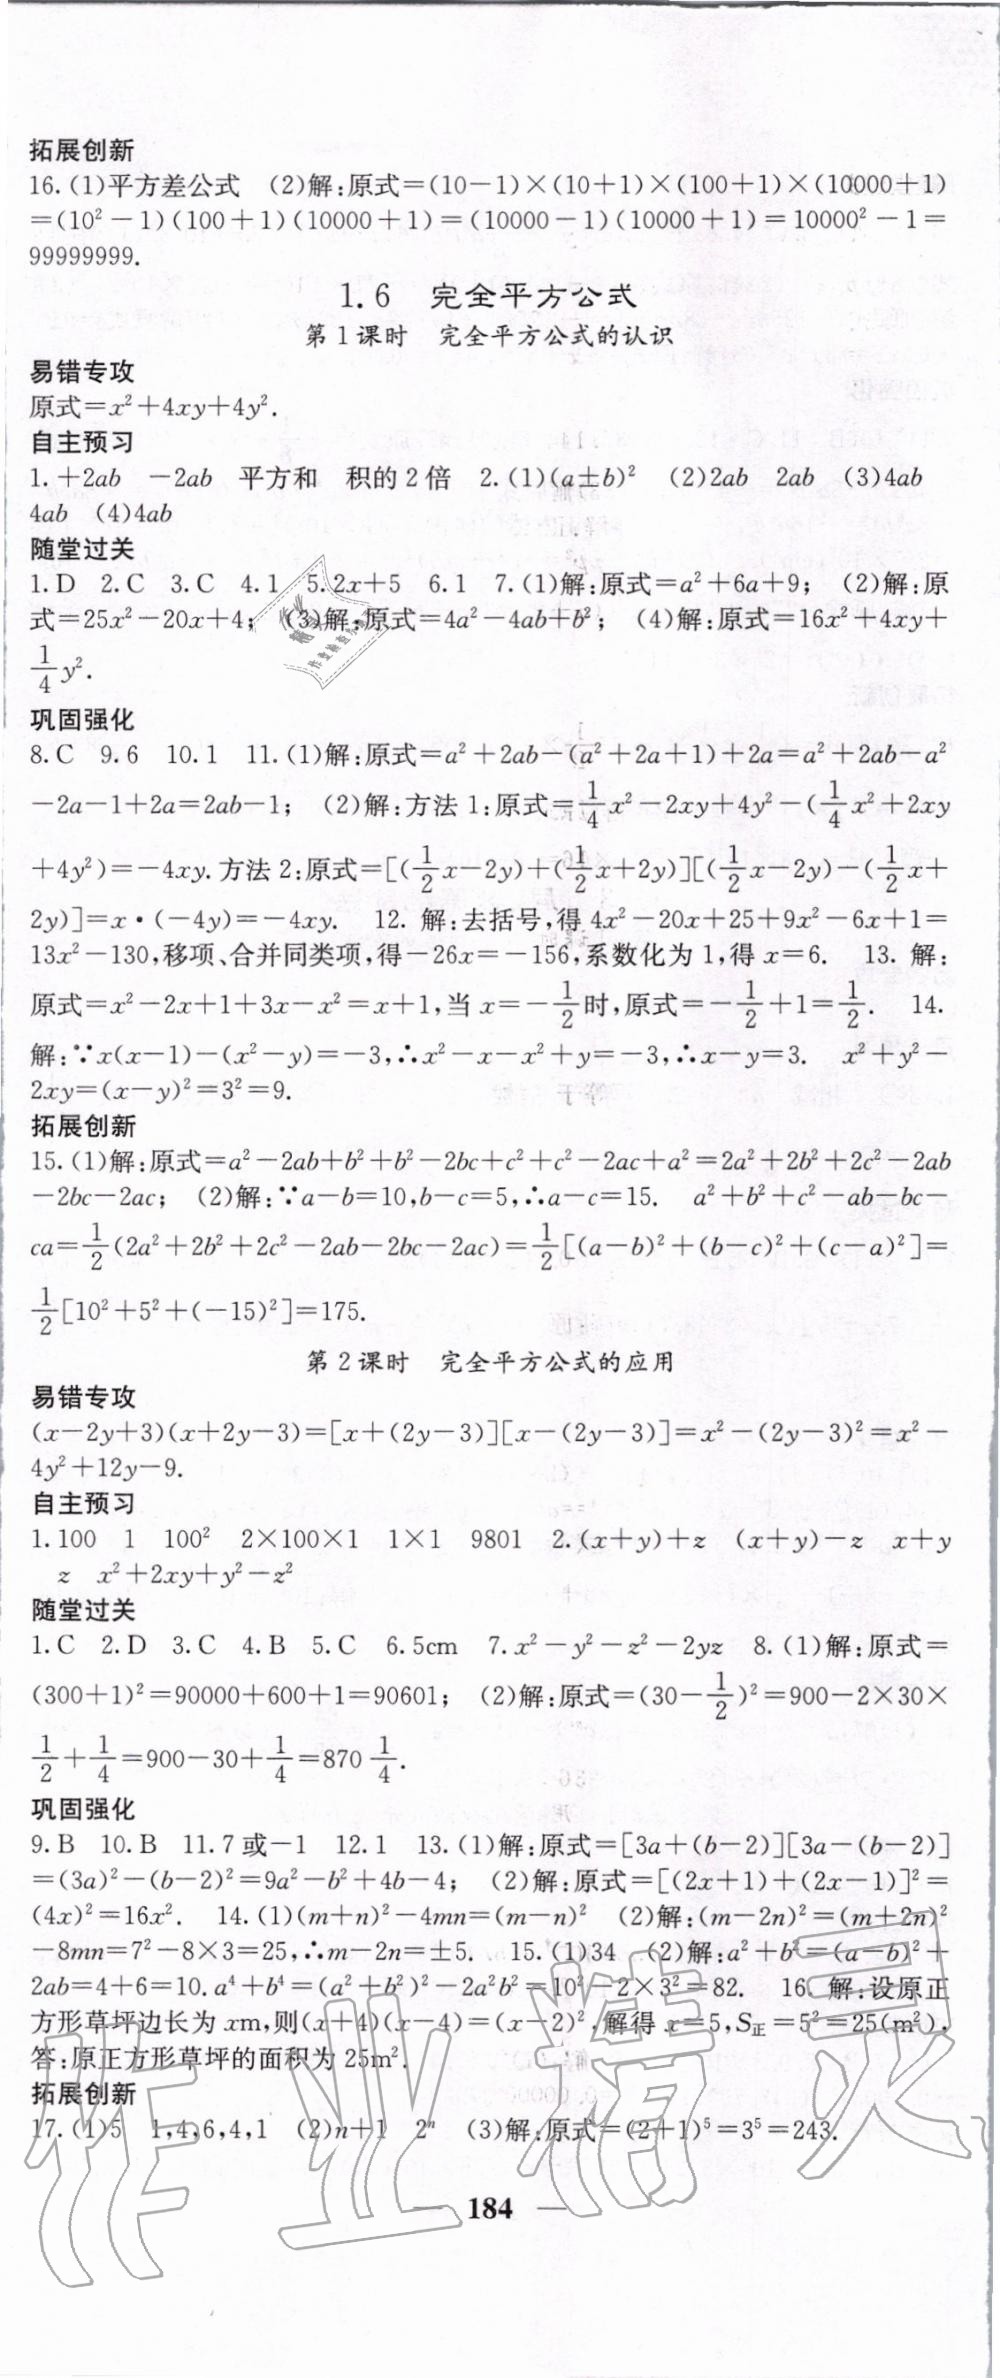 拓展创新
16.(1)平方差公式 (2)解:原式=(10-1)×(10+1)×(100+1)×(10000+1)
=(10²-1)(100+1)(10000+1)=(10000-1)(10000+1)=10000²-1=
99999999.
1.6 完全平方公式
第1课时 完全平方公式的认识
易错专攻
原式=x²+4xy+4y².
自主预习
1.+2ab -2ab 平方和 积的2倍 2.(1)(a±b)² (2)2ab 2ab (3)4ab
4ab (4)4ab
随堂过关
1.D 2.C 3.C 4.1 5.2x+5 6.1 7.(1)解:原式=a²+6a+9; (2)解:原
式=25x²-20x+4; (3)解:原式=4a²-4ab+b²; (4)解:原式=16x²+4xy+
1/4y².
巩固强化
8.C 9.6 10.1 11.(1)解:原式=a²+2ab-(a²+2a+1)+2a=a²+2ab-a²
-2a-1+2a=2ab-1; (2)解:方法1:原式=1/4x²-2xy+4y²-(1/4x²+2xy
+4y²)=-4xy.方法2:原式=[(1/2x-2y)+(1/2x+2y)][(1/2x-2y)-(1/2x+
2y)]=x·(-4y)=-4xy. 12. 解:去括号,得4x²-20x+25+9x²-6x+1=
13x²-130,移项、合并同类项,得-26x=-156,系数化为1,得x=6. 13. 解:
原式=x²-2x+1+3x-x²=x+1,当x=-1/2时,原式=-1/2+1=1/2. 14.
解:∵x(x-1)-(x²-y)=-3,∴x²-x-x²+y=-3,∴x-y=3. x²+y²-
2xy=(x-y)²=3²=9.
拓展创新
15.(1)解:原式=a²-2ab+b²+b²-2bc+c²+c²-2ac+a²=2a²+2b²+2c²-2ab
-2bc-2ac; (2)解:∵a-b=10,b-c=5,∴a-c=15. a²+b²+c²-ab-bc-
ca=1/2(2a²+2b²+2c²-2ab-2bc-2ac)=1/2[(a-b)²+(b-c)²+(c-a)²]=
1/2[10²+5²+(-15)²]=175.
第2课时 完全平方公式的应用
易错专攻
(x-2y+3)(x+2y-3)=[x+(2y-3)][x-(2y-3)]=x²-(2y-3)²=x²-
4y²+12y-9.
自主预习
1.100 1 100² 2×100×1 1×1 9801 2.(x+y)+z (x+y)-z x+y
z x²+2xy+y²-z²
随堂过关
1.C 2.D 3.C 4.B 5.C 6.5cm 7.x²-y²-z²-2yz 8.(1)解:原式=
(300+1)²=90000+600+1=90601; (2)解:原式=(30-1/2)²=900-2×30×
1/2+1/4=900-30+1/4=870 1/4.
巩固强化
9.B 10.B 11.7或-1 12.1 13.(1)解:原式=[3a+(b-2)][3a-(b-2)]
=(3a)²-(b-2)²=9a²-b²+4b-4; (2)解:原式=[(2x+1)+(2x-1)]²=
(4x)²=16x². 14.(1)(m+n)²-4mn=(m-n)² (2)解:(m-2n)²=(m+2n)²
-8mn=7²-8×3=25,∴m-2n=±5. 15.(1)34 (2)解:a²+b²=(a-b)²+
2ab=4+6=10.a⁴+b⁴=(a²+b²)²-2a²b²=10²-2×3²=82. 16. 解:设原正
方形草坪边长为xm,则(x+4)(x-4)=(x-2)²,解得x=5,S正=5²=25(m²),
答:原正方形草坪的面积为25m².
拓展创新
17.(1)5 1,4,6,4,1 (2)n+1 2ⁿ (3)解:原式=(2+1)⁵=3⁵=243.
184
作业精灵